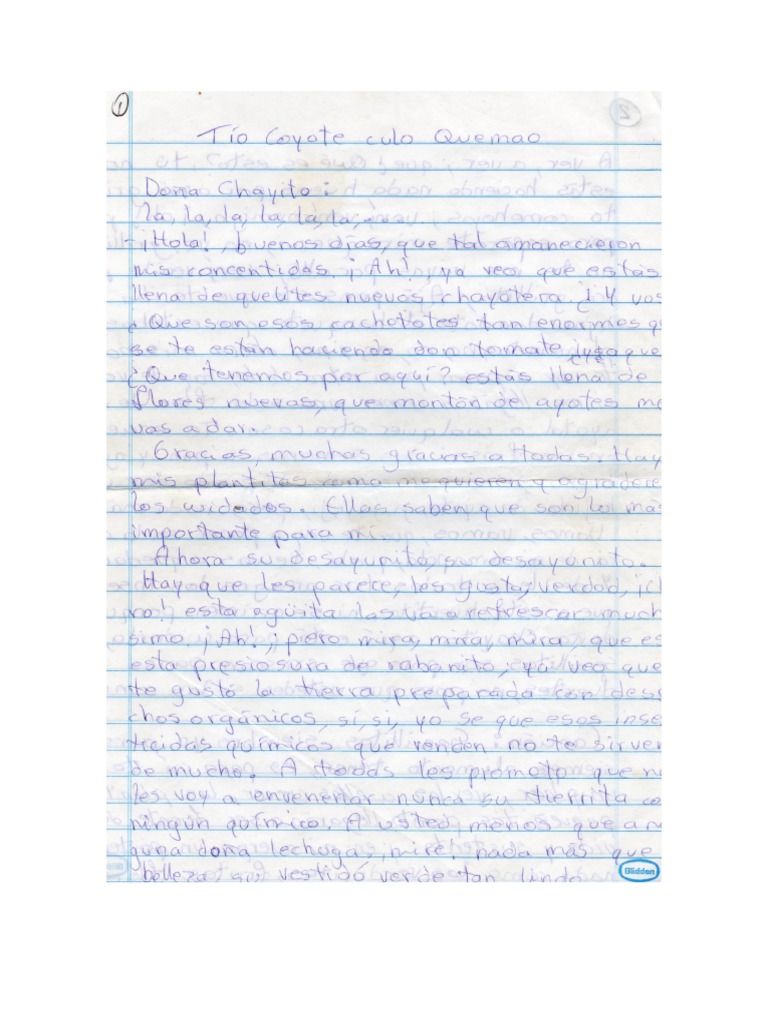 1
Tío Coyote culo Quemao
Dona Chayito:
la, la, la, la, la, la,
-¡Hola!, buenos días, que tal amanecieron
mis concentidas. ¡Ah! ya veo que estás
llena de quelites nuevos chayotera. ¿Y vos
¿Que son esos cachototes tan enormes q
se te están haciendo don tomate
¿Que tenemos por aquí? estás llena de
flores nuevas, que montón de ayotes me
vas a dar.
Gracias, muchas gracias a todas. Hay
mis plantitas como me quieren y agradece
los widados. Ellas saben que son lo más
importante para mi.
Ahora su desayunito, su desayunito.
Hay que les parece, les gusta, verdad, ¡Cl
ro! esta agüita las va a refrescar much
simo. ¡Ah!, ¡piero mira, mira, mira, que es
esta presiosura de rabanito; ya veo que
te gustó la tierra preparada con des
chos orgánicos, sí, sí, yo se que esos inse
ticidas químicos que venden no te sirven
de mucho. A todas les prometo que n
les voy a envenenar nunca su tierrita co
ningún químico. A usted menos que a n
guna dona lechuga, mire! nada más que
belleza su vestidó verde tan lindo
Glidden